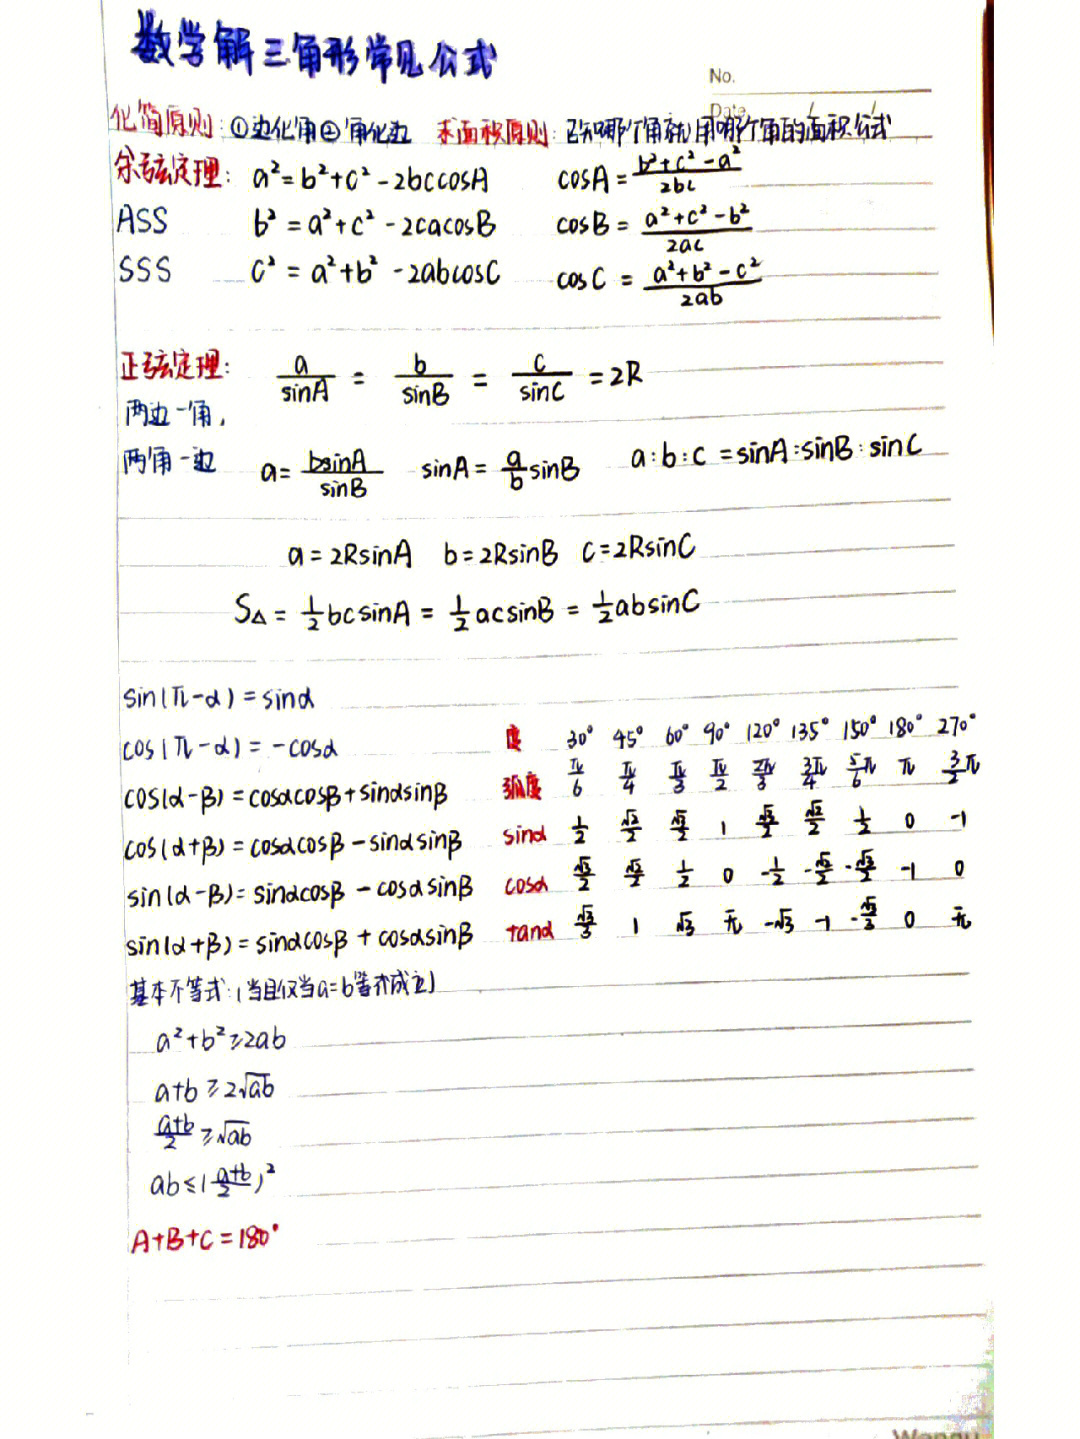 数学解三角形常见公式
No.
Date
化简原则:①边化角②角化边 求面积原则:已知哪个角就用哪个角的面积公式
余弦定理: a²=b²+c²-2bccosA cosA=\frac{b²+c²-a²}{2bc}
ASS b²=a²+c²-2cacosB cosB=\frac{a²+c²-b²}{2ac}
SSS c²=a²+b²-2abcosC cosC=\frac{a²+b²-c²}{2ab}
正弦定理: \frac{a}{sinA}=\frac{b}{sinB}=\frac{c}{sinC}=2R
两边一角,
两角一边 a=\frac{bsinA}{sinB} sinA=\frac{a}{b}sinB a:b:c=sinA:sinB:sinC
a=2RsinA b=2RsinB c=2RsinC
S△=\frac{1}{2}bcsinA=\frac{1}{2}acsinB=\frac{1}{2}absinC
sin(π-α)=sinα
cos(π-α)=-cosα
cos(α-β)=cosαcosβ+sinαsinβ
cos(α+β)=cosαcosβ-sinαsinβ
sin(α-β)=sinαcosβ-cosαsinβ
sin(α+β)=sinαcosβ+cosαsinβ
度 30° 45° 60° 90° 120° 135° 150° 180° 270°
弧度 \frac{π}{6} \frac{π}{4} \frac{π}{3} \frac{π}{2} \frac{2π}{3} \frac{3π}{4} \frac{5}{6}π π \frac{3}{2}π
sinα \frac{1}{2} \frac{√2}{2} \frac{√3}{2} 1 \frac{√3}{2} \frac{√2}{2} \frac{1}{2} 0 -1
cosα \frac{√3}{2} \frac{√2}{2} \frac{1}{2} 0 -\frac{1}{2} -\frac{√2}{2} -\frac{√3}{2} -1 0
tanα \frac{√3}{3} 1 √3 无 -√3 -1 -\frac{√3}{3} 0 无
基本不等式:(当且仅当a=b等号成立)
a²+b²≥2ab
a+b≥2√ab
\frac{a+b}{2}≥√ab
ab≤(\frac{a+b}{2})²
A+B+C=180°